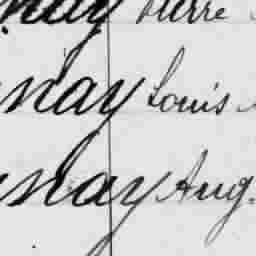 nay Pierre
nay Louis
nay Aug.